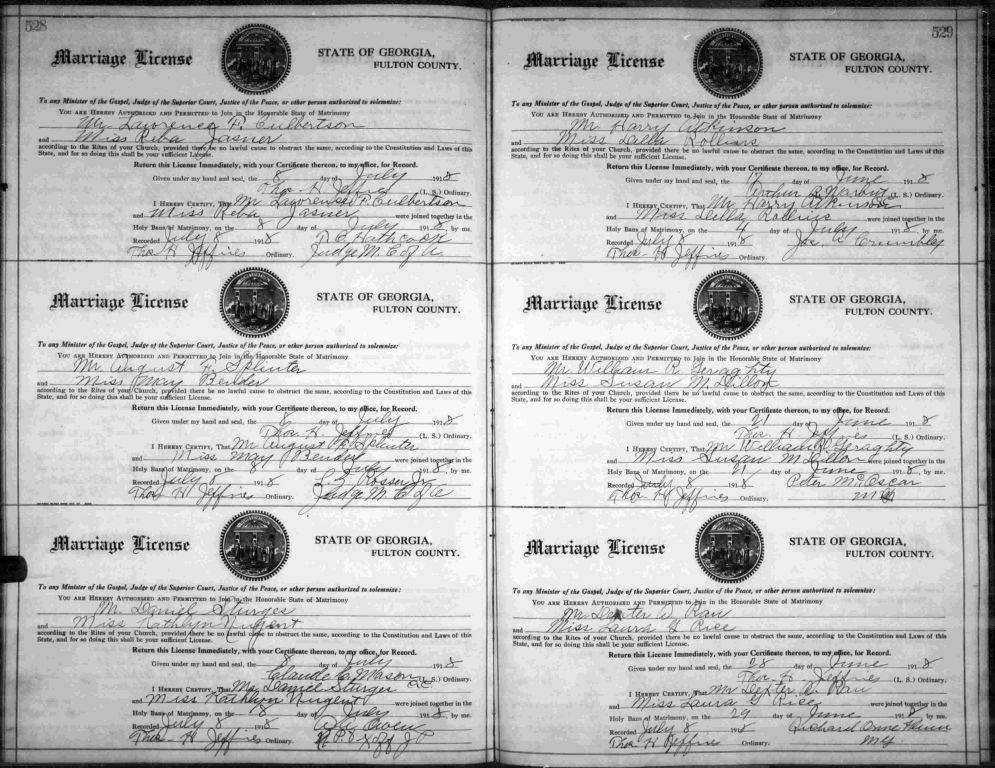 528
Marriage License
STATE OF GEORGIA,
FULTON COUNTY.
To any Minister of the Gospel, Judge of the Superior Court, Justice of the Peace, or other person authorized to solemnize:
YOU ARE HEREBY AUTHORIZED AND PERMITTED to Join in the Honorable State of Matrimony
Mr. Lawrence P. Culbertson
and Miss Reba Jasner
according to the Rites of your Church, provided there be no lawful cause to obstruct the same, according to the Constitution and Laws of this
State, and for so doing this shall be your sufficient License.
Return this License Immediately, with your Certificate thereon, to my office, for Record.
Given under my hand and seal, the 8 day of July 1918
Thos. H. Jeffries (L. S.) Ordinary.
I HEREBY CERTIFY, That Mr Lawrence P. Culbertson
and Miss Reba Jasner were joined together in the
Holy Bans of Matrimony, on the 8 day of July 1918, by me.
Recorded July 8 1918 Hathcock
Thos H Jeffries Ordinary. Judge M.C. of A.
Marriage License
STATE OF GEORGIA,
FULTON COUNTY.
To any Minister of the Gospel, Judge of the Superior Court, Justice of the Peace, or other person authorized to solemnize:
YOU ARE HEREBY AUTHORIZED AND PERMITTED to Join in the Honorable State of Matrimony
Mr. August F. Splinter
and Miss May Bender
according to the Rites of your Church, provided there be no lawful cause to obstruct the same, according to the Constitution and Laws of this
State, and for so doing this shall be your sufficient License.
Return this License Immediately, with your Certificate thereon, to my office, for Record.
Given under my hand and seal, the 8 day of July 1918
Thos. H. Jeffries (L. S.) Ordinary.
I HEREBY CERTIFY, That Mr August F. Splinter
and Miss May Bender were joined together in the
Holy Bans of Matrimony, on the 8 day of July 1918, by me.
Recorded July 8 1918 L. Z. Rosser Jr
Thos H Jeffries Ordinary. Judge M.C.
Marriage License
STATE OF GEORGIA,
FULTON COUNTY.
To any Minister of the Gospel, Judge of the Superior Court, Justice of the Peace, or other person authorized to solemnize:
YOU ARE HEREBY AUTHORIZED AND PERMITTED to Join in the Honorable State of Matrimony
Mr. Daniel Sturges
and Miss Kathlyn Nugent
according to the Rites of your Church, provided there be no lawful cause to obstruct the same, according to the Constitution and Laws of this
State, and for so doing this shall be your sufficient License.
Return this License Immediately, with your Certificate thereon, to my office, for Record.
Given under my hand and seal, the 8 day of July 1918
Claude C. Mason (L. S.) Ordinary.
I HEREBY CERTIFY, That Mr Daniel Sturges
and Miss Kathlyn Nugent were joined together in the
Holy Bans of Matrimony, on the 8 day of July 1918, by me.
Recorded July 8 1918 Owen
Thos H Jeffries Ordinary. N.P. & Ex off J P
529
Marriage License
STATE OF GEORGIA,
FULTON COUNTY.
To any Minister of the Gospel, Judge of the Superior Court, Justice of the Peace, or other person authorized to solemnize:
YOU ARE HEREBY AUTHORIZED AND PERMITTED to Join in the Honorable State of Matrimony
Mr. Harry Atkinson
and Miss Leilla Rollins
according to the Rites of your Church, provided there be no lawful cause to obstruct the same, according to the Constitution and Laws of this
State, and for so doing this shall be your sufficient License.
Return this License Immediately, with your Certificate thereon, to my office, for Record.
Given under my hand and seal, the day of June 1918
Arthur (L. S.) Ordinary.
I HEREBY CERTIFY, That Mr. Harry Atkinson
and Miss Leilla Rollins were joined together in the
Holy Bans of Matrimony, on the 4 day of July 1918, by me.
Recorded July 8 1918 Jas. A. Crumbley
Thos H Jeffries Ordinary.
Marriage License
STATE OF GEORGIA,
FULTON COUNTY.
To any Minister of the Gospel, Judge of the Superior Court, Justice of the Peace, or other person authorized to solemnize:
YOU ARE HEREBY AUTHORIZED AND PERMITTED to Join in the Honorable State of Matrimony
Mr. William R Geraghty
and Miss Susan M. Dillon
according to the Rites of your Church, provided there be no lawful cause to obstruct the same, according to the Constitution and Laws of this
State, and for so doing this shall be your sufficient License.
Return this License Immediately, with your Certificate thereon, to my office, for Record.
Given under my hand and seal, the 21 day of June 1918
Thos. H Jeffries (L. S.) Ordinary.
I HEREBY CERTIFY, That Mr William R Geraghty
and Miss Susan M Dillon were joined together in the
Holy Bans of Matrimony, on the 21 day of June 1918, by me.
Recorded July 8 1918 Peter McOscar
Thos H Jeffries Ordinary. M G
Marriage License
STATE OF GEORGIA,
FULTON COUNTY.
To any Minister of the Gospel, Judge of the Superior Court, Justice of the Peace, or other person authorized to solemnize:
YOU ARE HEREBY AUTHORIZED AND PERMITTED to Join in the Honorable State of Matrimony
Mr Dexter A. Rau
and Miss Laura G Rice
according to the Rites of your Church, provided there be no lawful cause to obstruct the same, according to the Constitution and Laws of this
State, and for so doing this shall be your sufficient License.
Return this License Immediately, with your Certificate thereon, to my office, for Record.
Given under my hand and seal, the 28 day of June 1918
Thos. H Jeffries (L. S.) Ordinary.
I HEREBY CERTIFY, That Mr Dexter A. Rau
and Miss Laura G Rice were joined together in the
Holy Bans of Matrimony, on the 29 day of June 1918, by me.
Recorded July 8 1918 Richard Orme Flinn
Thos H Jeffries Ordinary. M G